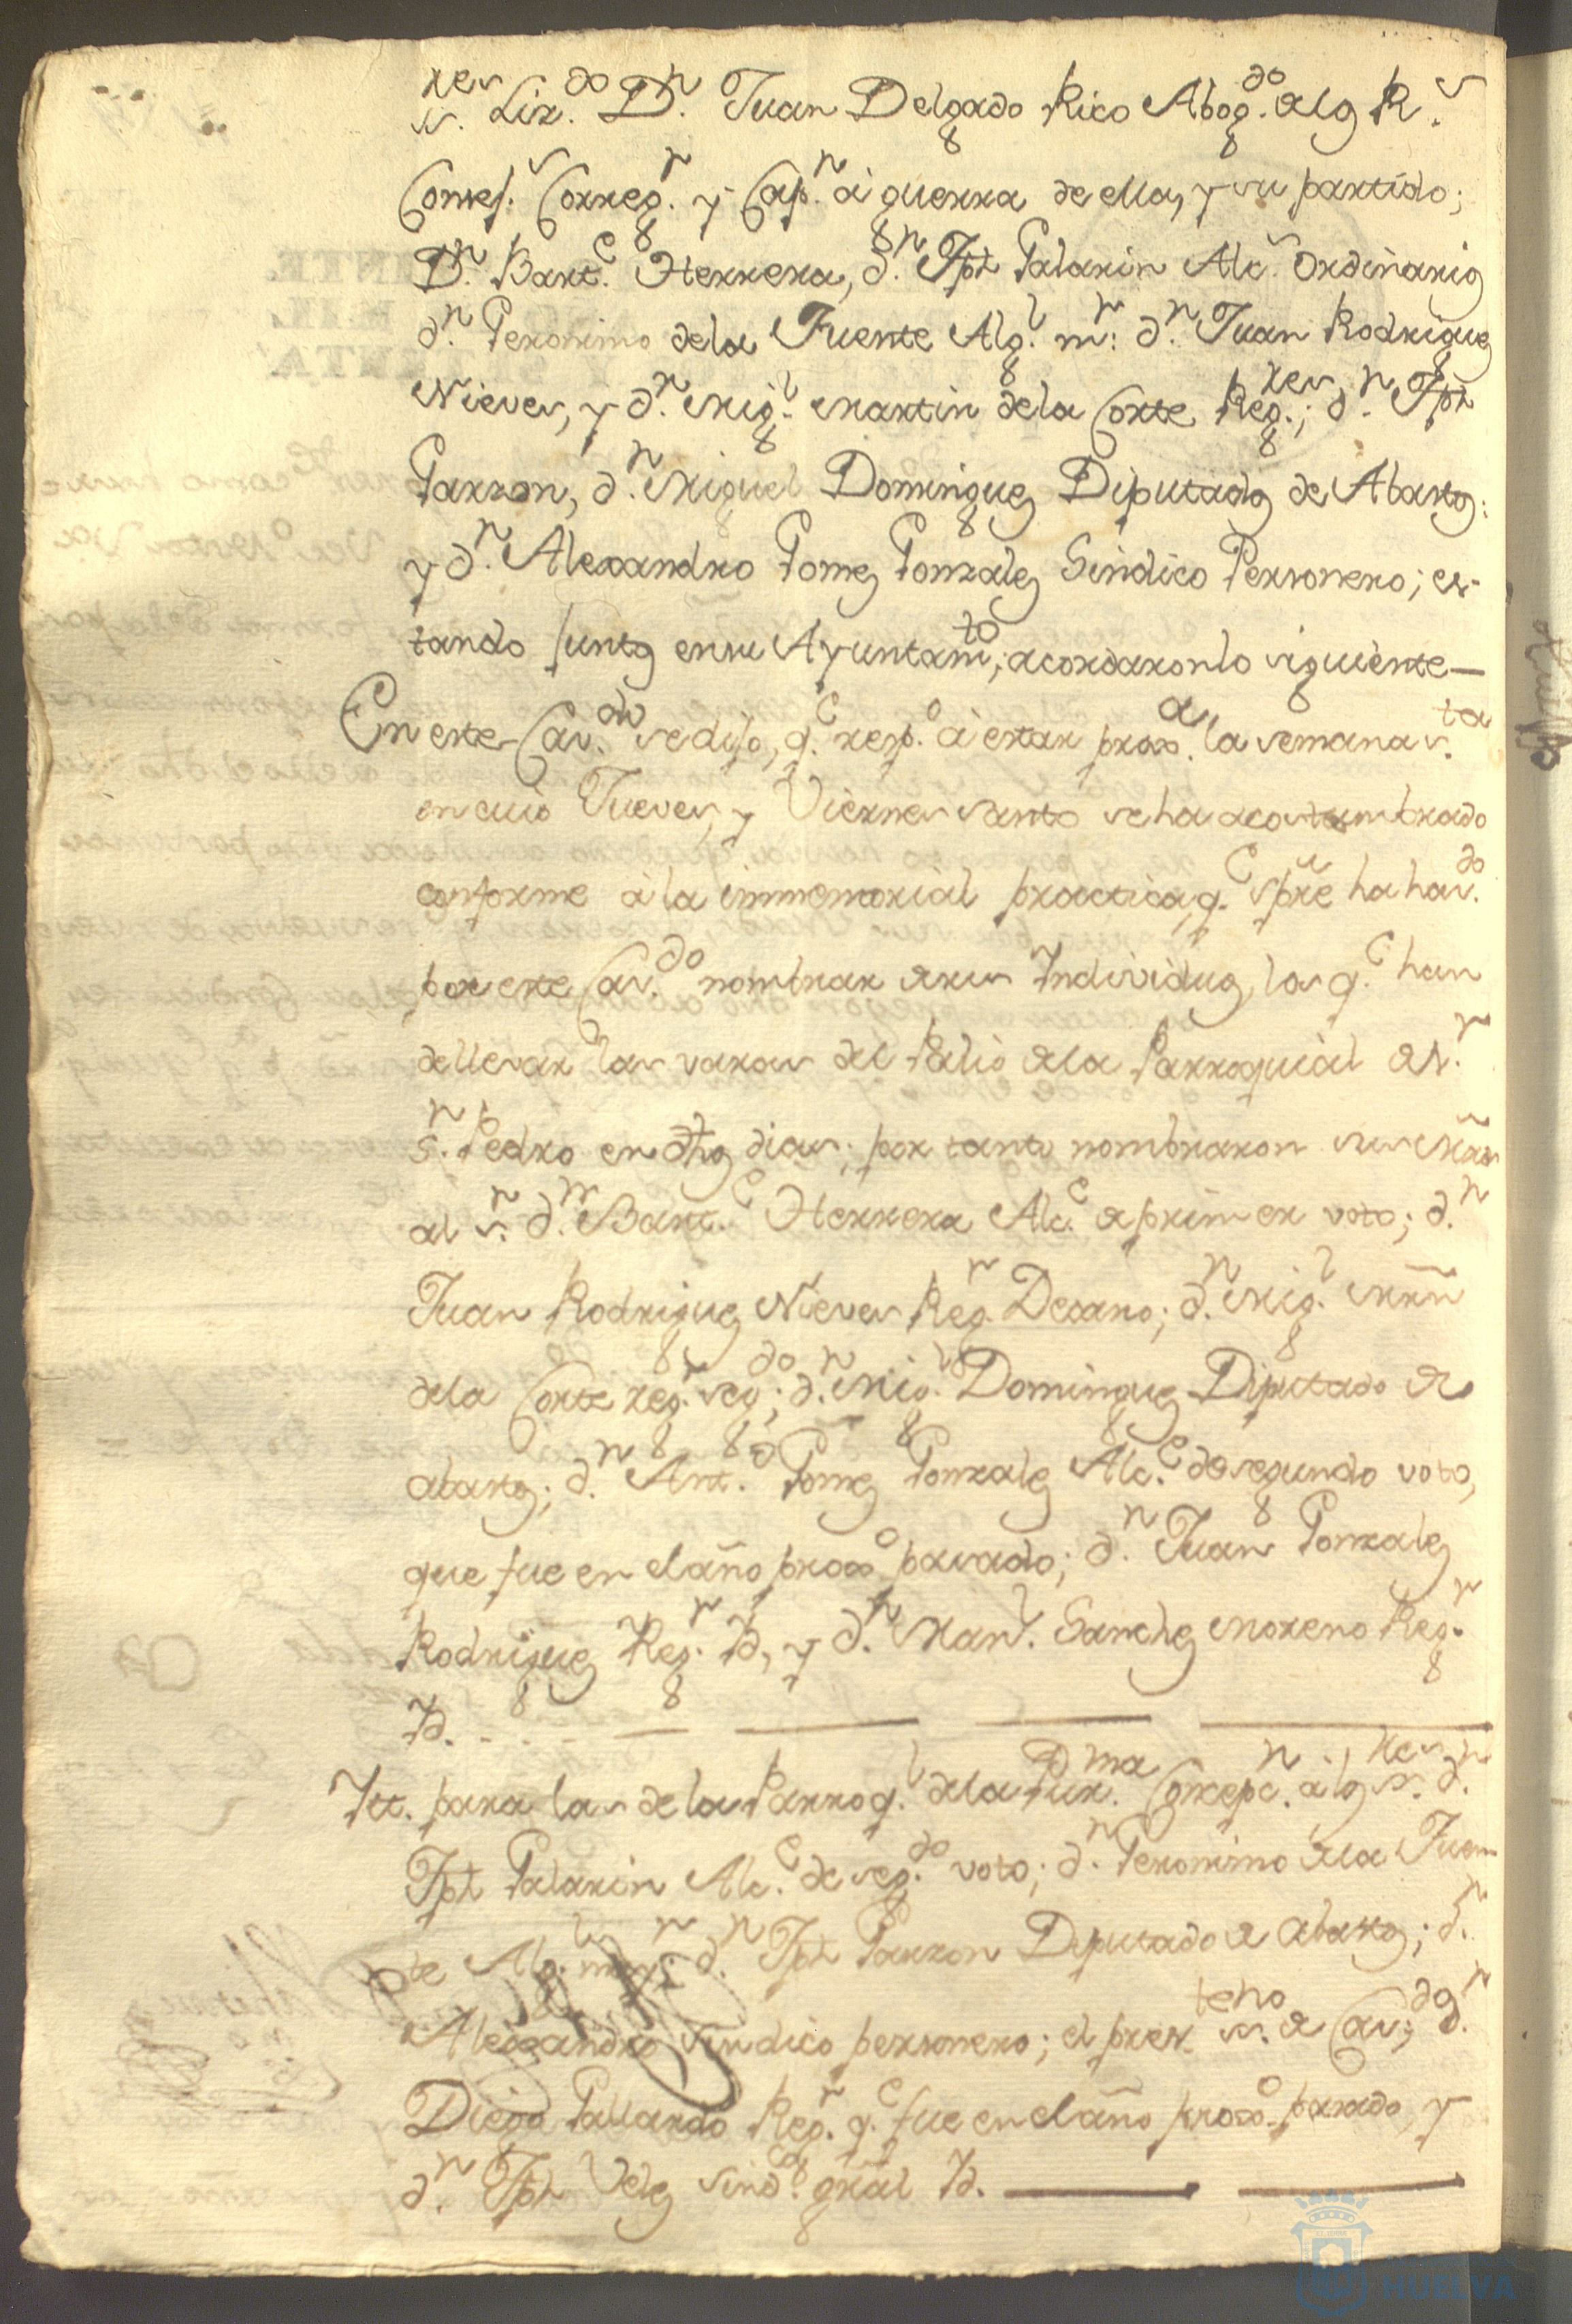 s.res Liz.do D.n Juan Delgado Rico Abog.do de los R.s
Consej.s Correg.r y Cap.n a guerra de ella, y su partido;
D.n Bart.e Herrera, d.n Jph Galarin Alc.s Ordinarios
d.n Geronimo de la Fuente Alg.l m.r d.n Juan Rodrigues
Nieves, y d.n Mig.l Martin de la Corte Reg.res; d.n Jph
Garzon, d.n Miguel Domingues Diputados de Abastos:
y d.n Alexandro Gomes Gonzales Sindico Personero; es-
tando juntos en su Ayuntam.to, acordaron lo siguiente—
En este Cav.do se dijo, q.e resp.o a estar prox.a la semana s.ta
en cuio Jueves, y Viernes santo se ha acostumbrado
conforme a la immemorial practica, q.e spre ha hav.do
por este Cav.do nombrar de sus Individuos, los q.e han
de llevar las varas del Palio de la Parroquial de S.r
S.n Pedro en dhos dias; por tanto nombraron sus Mrds
al s.r d.n Bart.e Herrera Alc.e de primer voto; d.n
Juan Rodrigues Nieves Reg.r Decano; d.n Mig.l Mrñ
de la Corte reg.r seg.do; d.n Mig.l Domingues Diputado de
abastos; d.n Ant.o Gomes Gonzales Alc.e de segundo voto,
que fue en el año prox.o pasado; d.n Juan Gonzales
Rodrigues Reg.r Yd., y d.n Man.l Sanches Moreno Reg.r
Yd. - - - — — — —
Ytt. para las de la Parroq.l de la Pur.ma Concepc.n a los s.res d.n
Jph Galarin Alc.e de seg.do voto; d.n Geronimo de la Fuen
te Alg.l may.r d.n Jph Garzon Diputado de abastos; d.n
Alexandro sindico personero; el pres.te ss.no de Cav.do; d.n
Diego Gallardo Reg.r q.e fue en el año prox.o pasado y
d.n Jph Veles sind.o gral Yd. — —
HUELVA